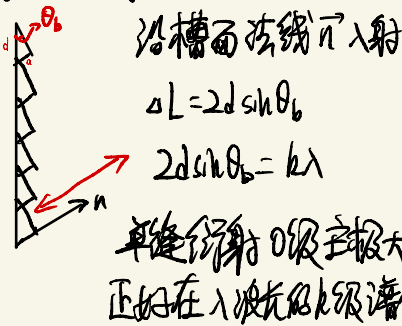 θb
d
a
沿槽面法线n入射
ΔL=2dsinθb
2dsinθb=kλ
n
单缝衍射0级主极大
正好在λ波长的k级谱